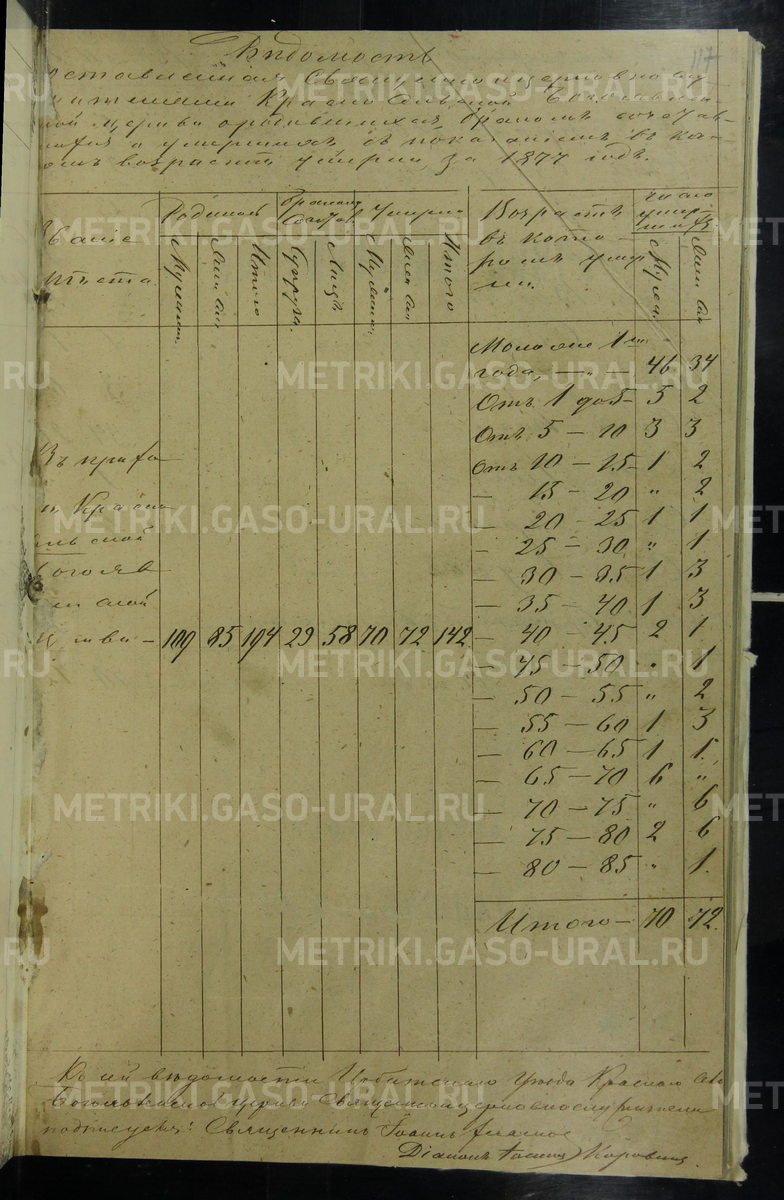 117
Вѣдомость
оставленная Священноцерковнослу
жителями Красносельской Богоявлен
ской церкви о родившихся, бракомъ сочетав
шихся и умершихъ съ показаніемъ въ ка
комъ возрастѣ умерли, за 1877 годъ.
Званіе
мѣста.
Родилось
Бракомъ Сочет.
Умерло
Мужеска.
Женска
Итого
Супруж.
Лицъ
Мужеска
Женска
Итого
Возрастъ
въ кото-
ромъ умер
ли.
Число
умер
шихъ
Мужеск.
Женска
Въ прихо
Красно
сельской
Богояв
ленской
церкви — 109 85 194 29 58 70 72 142
Моложе 1го
года, — „ — 46 34
Отъ 1 до 5 — 5 2
Отъ 5 — 10 3 3
Отъ 10 — 15 — 1 2
— 15 — 20 „ 2
— 20 — 25 1 1
— 25 — 30 „ 1
— 30 — 35 1 3
— 35 — 40 1 3
— 40 — 45 2 1
— 45 — 50 „ 1
— 50 — 55 „ 2
— 55 — 60 1 3
— 60 — 65 1 1
— 65 — 70 6 „
— 70 — 75 „ 6
— 75 — 80 2 6
— 80 — 85 „ 1.
Итого — 70 72.
Къ сей вѣдомости Ирбитскаго уѣзда Красно
Богоявленской церкви Священноцерковнослужители
подписуемъ: Священникъ Іоаннъ
Діаконъ Іоаннъ Коровинъ
METRIKI.GASO-URAL.RU